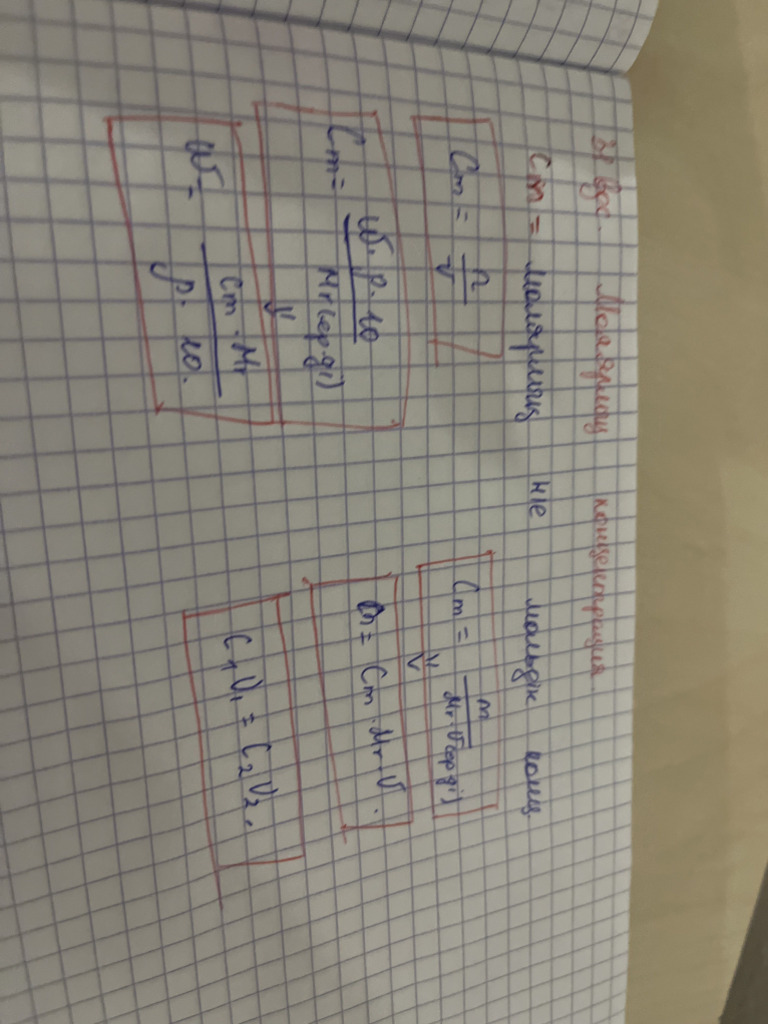 Молярлық концентрация.
Cm = молярлық не мольдік конц.
Cm = n / V
Cm = m / Mr·V(ерді)
Cm = ω·ρ·10 / Mr(ерді)
m = Cm·Mr·V.
ω = Cm·Mr / ρ·10.
C₁V₁ = C₂V₂.